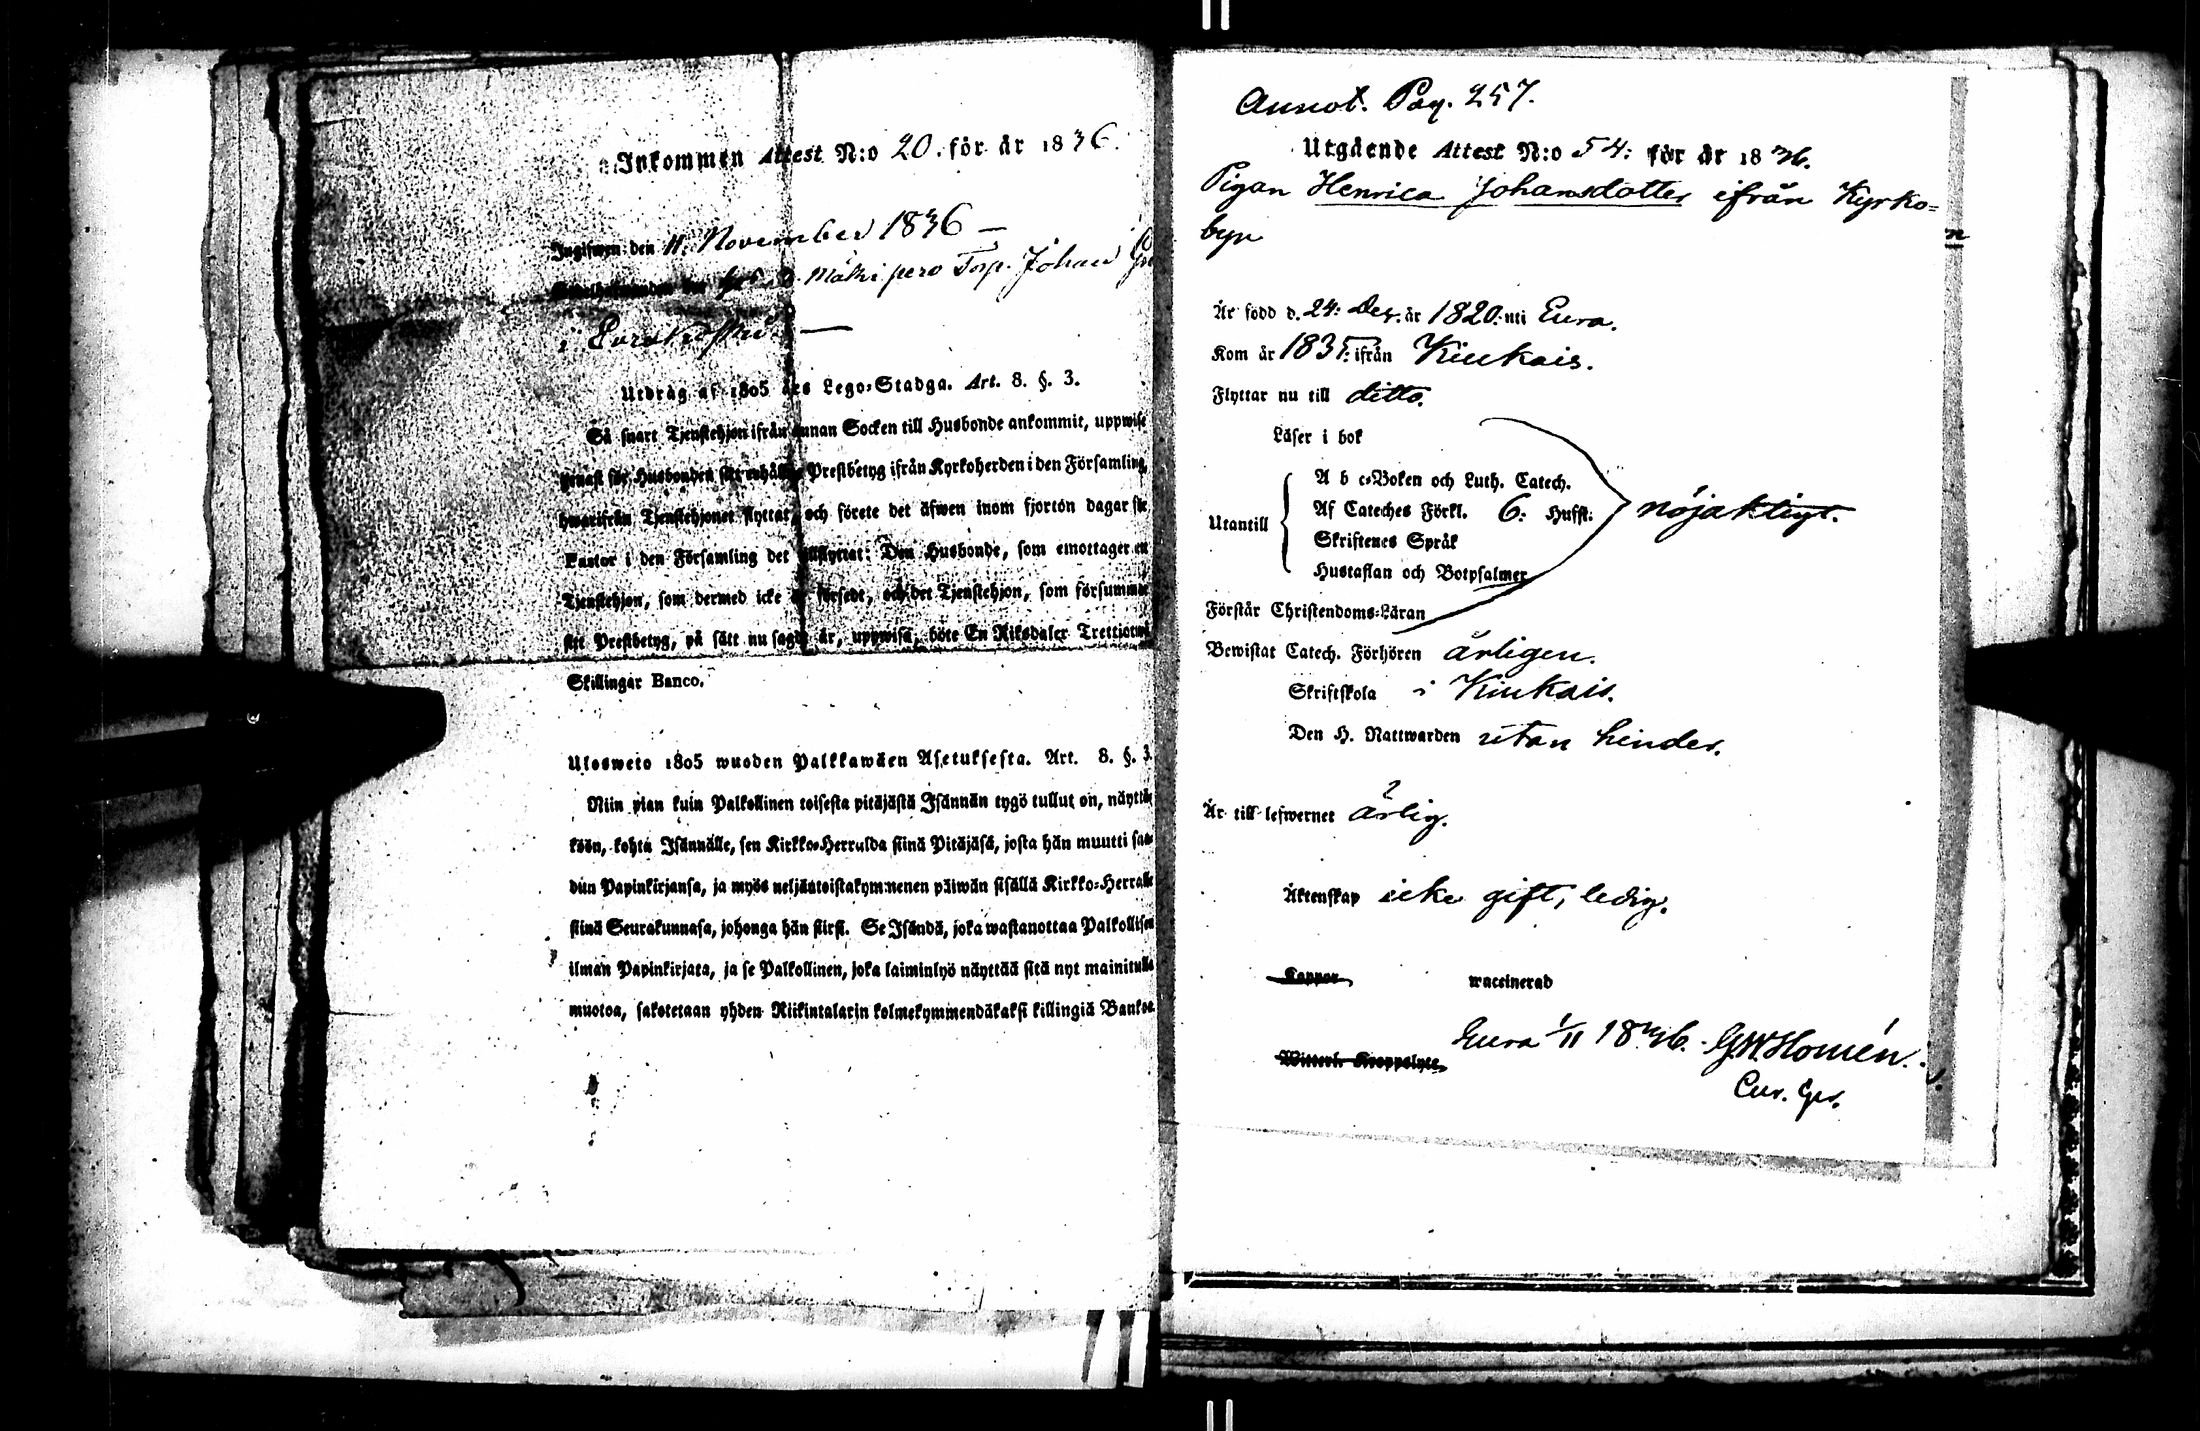 Inkommen Attest N:o 20. för år 1836.
Ingifwen den 11. November 1836 —
Mälkipero Torp. Johan
i
Utdrag af 1805 års Lego-Stadga. Art. 8. §. 3.
Så snart Tjenstehjon ifrån annan Socken till Husbonde ankommit, uppwise
genast för Husbonden sitt erhållne Prestbetyg ifrån Kyrkoherden i den Församling,
hwarifrån Tjenstehjonet flyttat, och förete det äfwen inom fjorton dagar för
Pastor i den Församling det tillflyttat. Den Husbonde, som emottager en
Tjenstehjon, som dermed icke är försedt, och det Tjenstehjon, som försummar
sitt Prestbetyg, på sätt nu sagdt är, uppwisa, böte En Riksdaler Trettiotwå
Skillingar Banco.
Ulosweto 1805 wuoden Palkkawäen Asetuksesta. Art. 8. §. 3.
Niin pian kuin Palkollinen toisesta pitäjästä Isännän tygö tullut on, näyttä-
köön, kohta Isännälle, sen Kirkko-Herralda siinä Pitäjäsä, josta hän muutti saa-
dun Papinkirjansa, ja myös neljäntoistakymmenen päiwän sisällä Kirkko-Herralle
siinä Seurakunnasa, johonga hän siirsi. Se Isändä, joka wastanottaa Palkollisen
ilman Papinkirjata, ja se Palkollinen, joka laiminlyö näyttää sitä nyt mainitulla
muotoa, sakotetaan yhden Riikintalarin kolmekymmendäkaksi killingiä Bankoa.
Annot. Pag. 257.
Utgående Attest N:o 54: för år 1836.
Pigan Henrica Johansdotter ifrån Kyrko=
byn
Är född d. 24: Dec. år 1820. uti Eura.
Kom år 1835: ifrån Kiukais.
Flyttar nu till ditto.
Läser i bok
Utantill
A b c-Boken och Luth. Catech.
Af Cateches Förkl. 6: Hufst:
Skriftenes Språk
Hustaflan och Botpsalmer
nöjaktigt.
Förstår Christendoms-Läran
Bewistat Catech. Förhören årligen.
Skriftskola i Kiukais.
Den H. Nattwarden utan hinder.
Är till lefwernet ärlig.
Äktenskap icke gift, ledig.
Koppor waccinerad
Witterl. Kroppslyte
Eura 1/11 1836. G W Homén.
Cur. Ger.